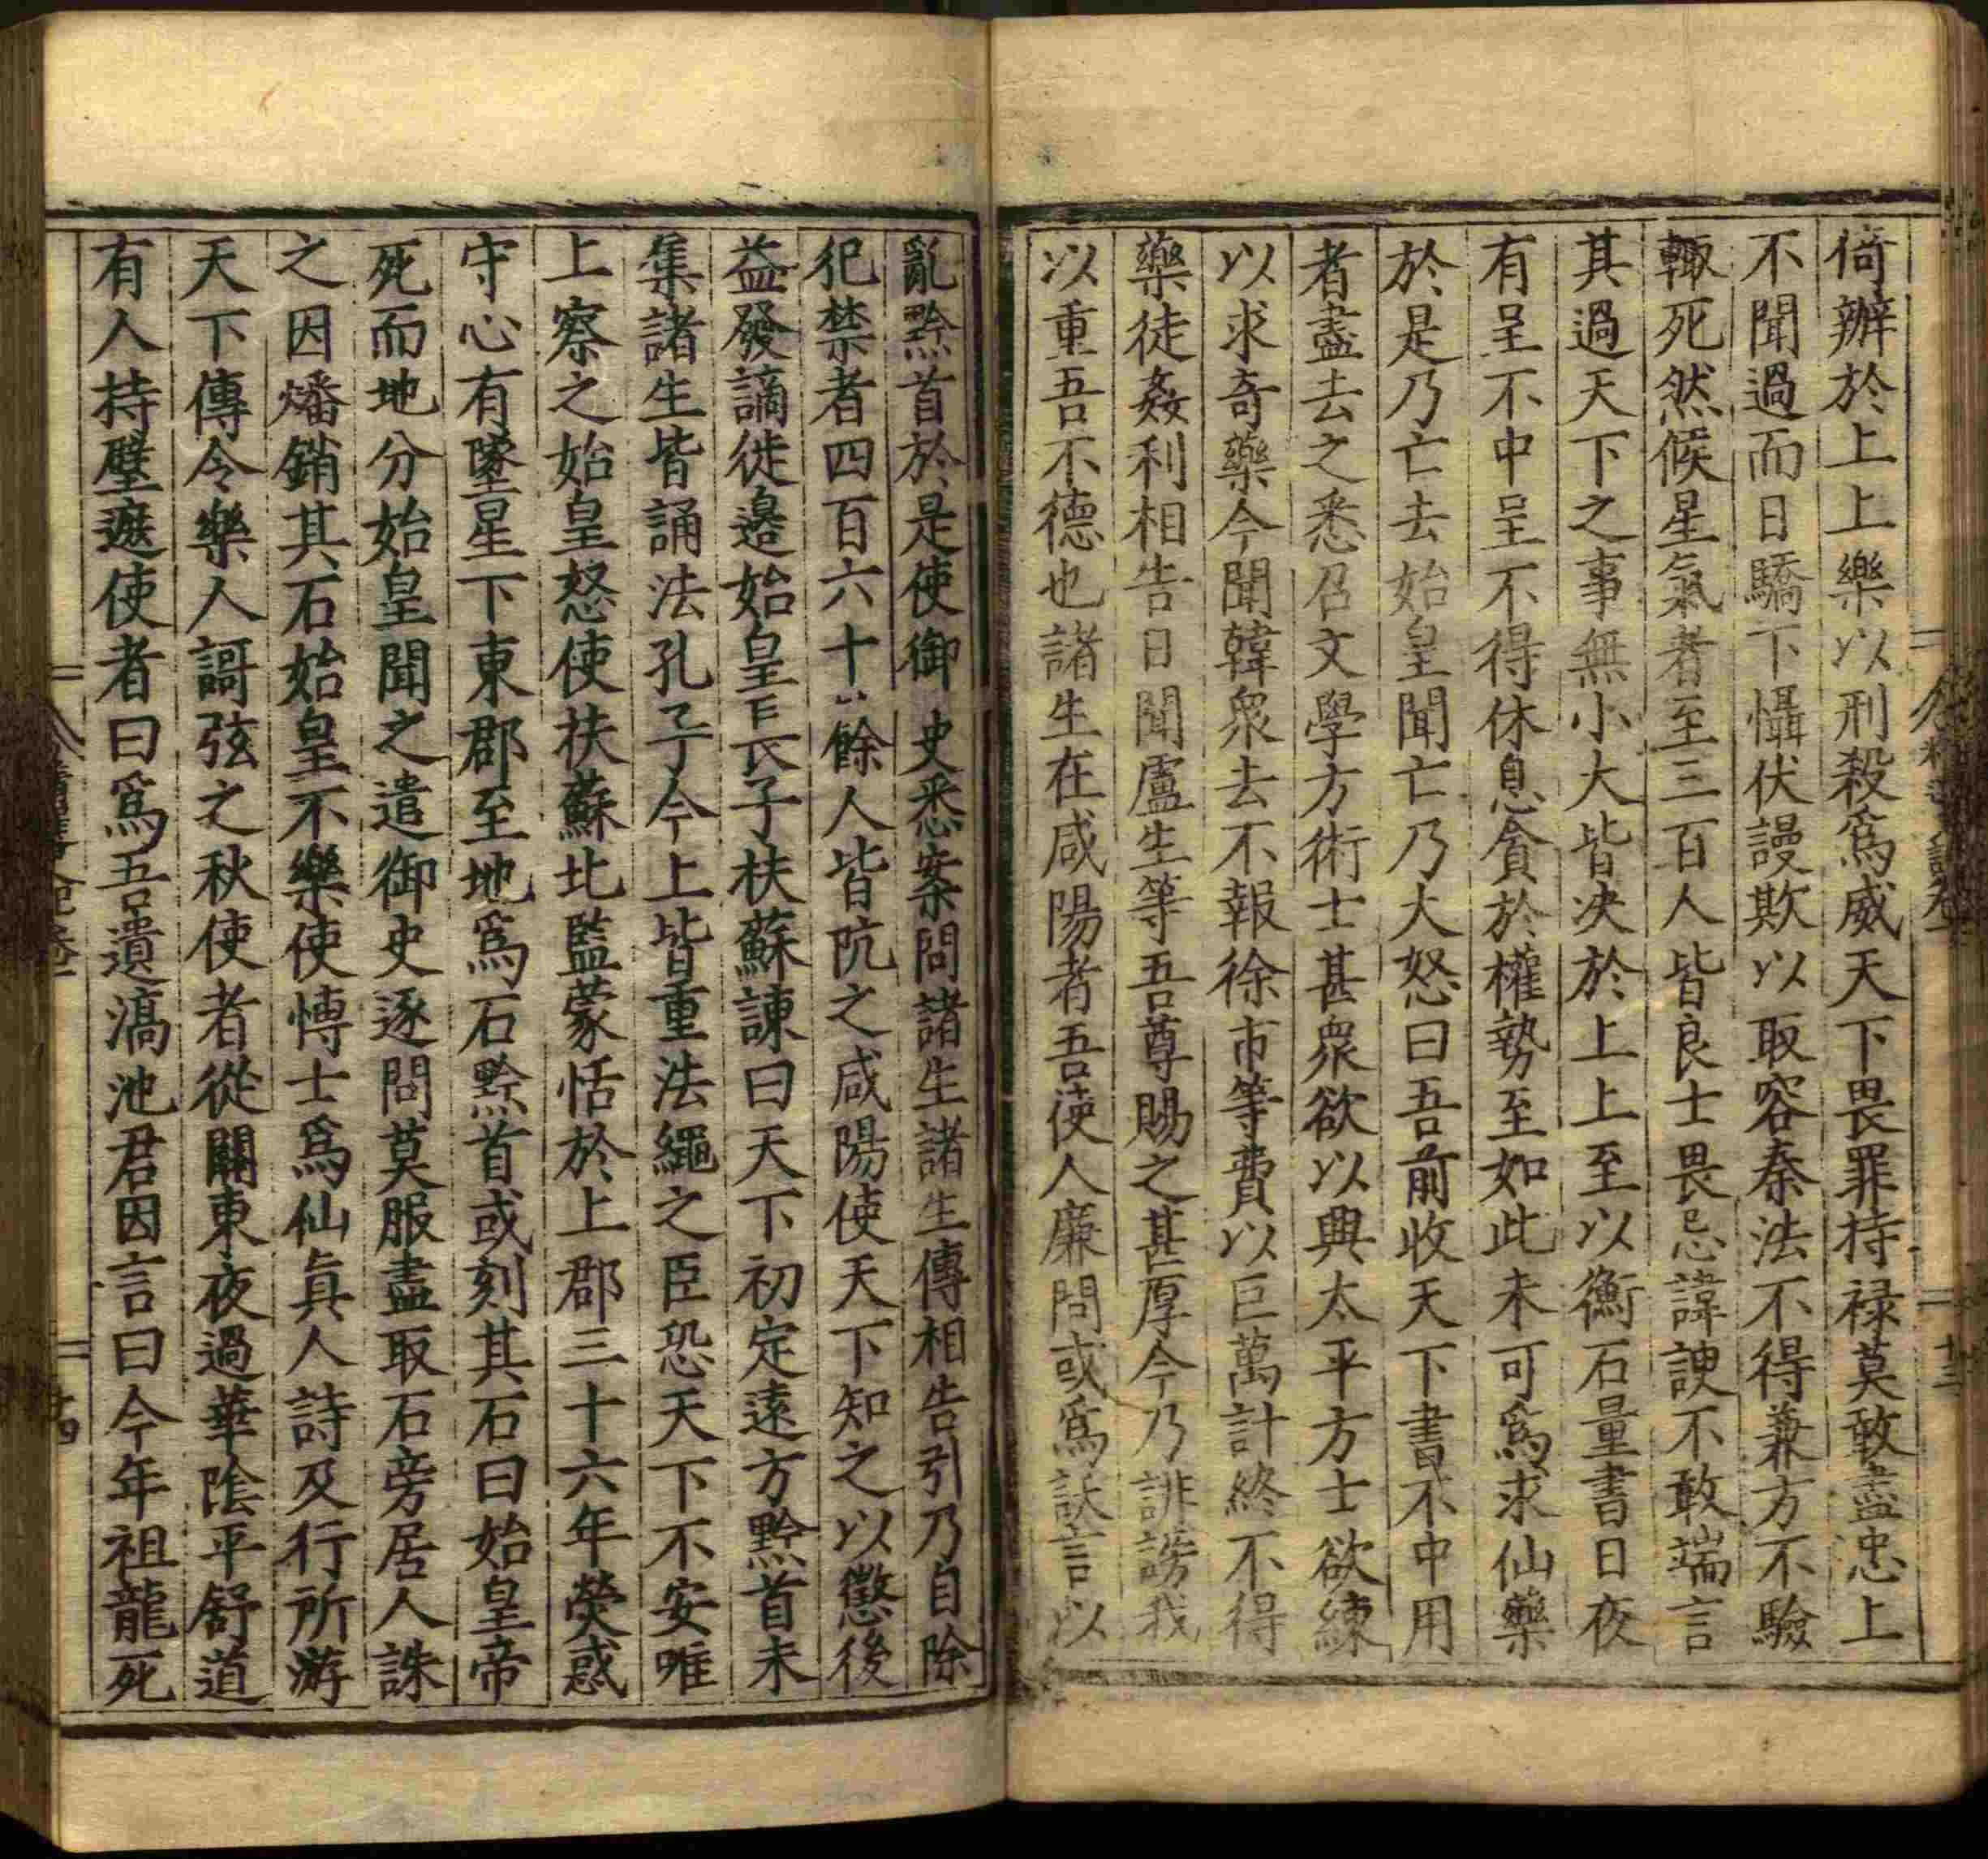 倚辦於上上樂以刑殺爲威天下畏罪持禄莫敢盡忠上
不聞過而日驕下懾伏謾欺以取容秦法不得兼方不驗
輙死然候星氣者至三百人皆良士畏忌諱諛不敢端言
其過天下之事無小大皆决於上上至以衡石量書日夜
有呈不中呈不得休息貪於權勢至如此未可爲求仙藥
於是乃亡去始皇聞亡乃大怒曰吾前收天下書不中用
者盡去之悉召文學方術士甚衆欲以興太平方士欲練
以求奇藥今聞韓衆去不報徐市等費以巨萬計終不得
藥徒姦利相告日聞盧生等吾尊賜之甚厚今乃誹謗我
以重吾不德也諸生在咸陽者吾使人廉問或爲訞言以
亂黔首於是使御史悉案問諸生諸生傳相告引乃自除
犯禁者四百六十餘人皆阬之咸陽使天下知之以懲後
益發謫徙邉始皇長子扶蘇諫曰天下初定遠方黔首未
集諸生皆誦法孔子今上皆重法繩之臣恐天下不安唯
上察之始皇怒使扶蘇北監蒙恬於上郡三十六年熒惑
守心有墜星下東郡至地爲石黔首或刻其石曰始皇帝
死而地分始皇聞之遣御史逐問莫服盡取石旁居人誅
之因燔銷其石始皇不樂使博士爲仙眞人詩及行所游
天下傳令樂人謌弦之秋使者從關東夜過華陰平舒道
有人持璧遮使者曰爲吾遺滈池君因言曰今年祖龍死
十三
十四